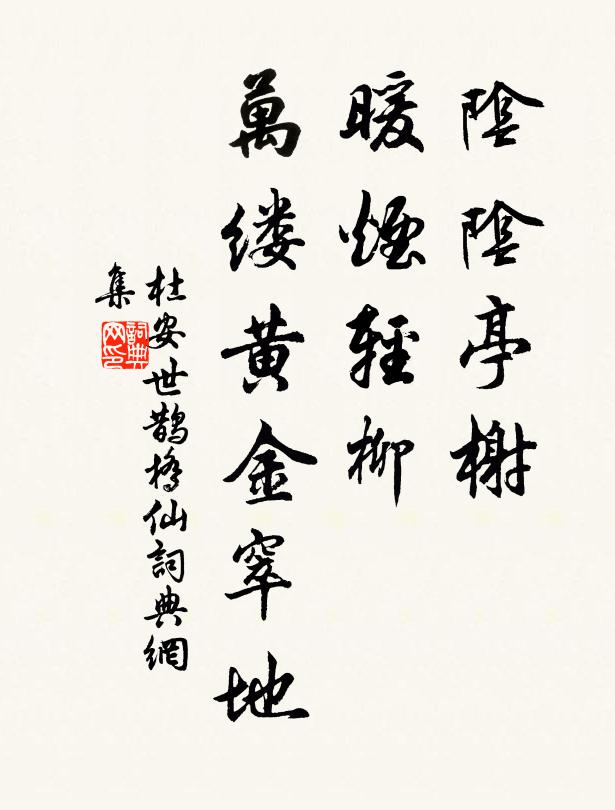 陰陰亭榭
暖煙輕柳
萬缕黄金窣地
杜安世鹊橋仙詞典網
集
詞典
网印